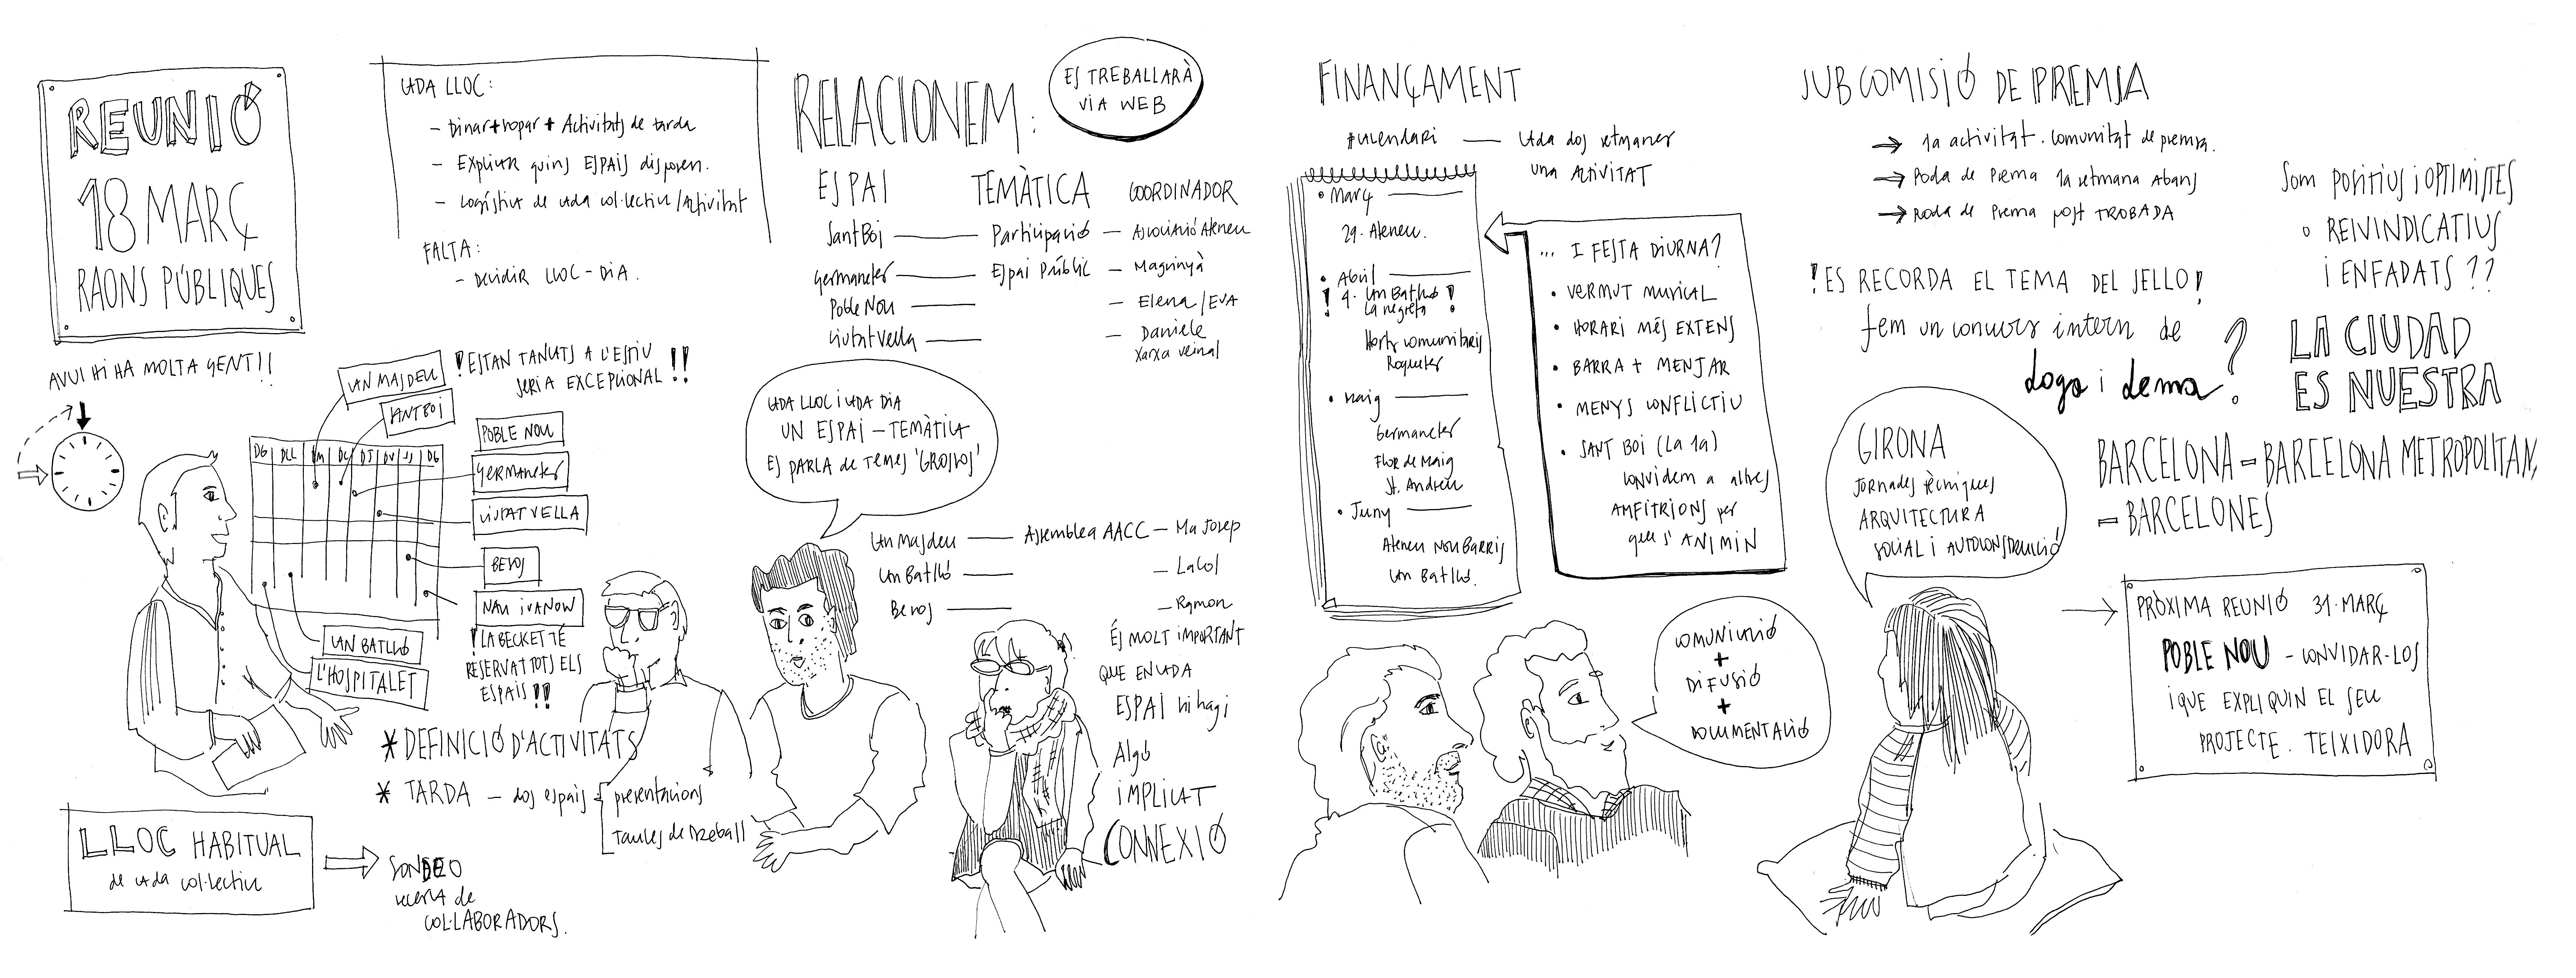 REUNIÓ
18 MARÇ
RAONS PÚBLIQUES
AVUI HI HA MOLTA GENT!!
CADA LLOC:
- Dinar+sopar + Activitats de tarda
- Explicar quins ESPAIS disposen.
- Logística de cada col·lectiu/Activitat
FALTA:
- Decidir LLOC - DIA.
CAN MASDEU
SANT BOI
!ESTAN TANCATS A L'ESTIU
SERIA EXCEPCIONAL!!
DG DLL DM DC DJ DV DS DG
POBLE NOU
GERMANETES
CIUTAT VELLA
BESOS
NAU IVANOW
CAN BATLLÓ
L'HOSPITALET
!LA BECKET TÉ
RESERVAT TOTS ELS
ESPAIS!!
* DEFINICIÓ D'ACTIVITATS
* TARDA - dos espais
presentacions
Taules de treball
LLOC HABITUAL
de cada col·lectiu
SONDEO
recerca de
COL·LABORADORS.
RELACIONEM:
ES TREBALLARÀ
VIA WEB
ESPAI TEMÀTICA COORDINADOR
Sant Boi — Participació — Associació Ateneu
Germanetes — Espai Públic — Maguinyà
Poble Nou — — Elena/EVA
Ciutat Vella — — Daniele
Xarxa veinal
CADA LLOC I CADA DIA
UN ESPAI - TEMÀTICA
ES PARLA de TEMES 'GROSSOS'
Can Masdeu — Assemblea AACC — Ma Josep
Can Batlló — — Lacol
Besos — — Ramon
ÉS MOLT IMPORTANT
QUE EN CADA
ESPAI hi hagi
Algú
IMPLICAT
CONNEXIÓ
FINANÇAMENT
*calendari — Cada dos setmanes
una ACTIVITAT
• Març
29. Ateneu.
• Abril
! 4. Can Batlló !
La negreta
Horts comunitaris
Roquetes
• Maig
Germanetes
Flor de Maig
St. Andreu
• Juny
Ateneu Nou Barris
Can Batlló.
... I FESTA DIURNA?
• VERMUT MUSICAL
• HORARI MÉS EXTENS
• BARRA + MENJAR
• MENYS CONFLICTIU
• SANT BOI (La 1a)
convidem a altres
AMFITRIONS per
que s'ANIMIN
COMUNICACIÓ
+
DIFUSIÓ
+
DOCUMENTACIÓ
SUBCOMISIÓ DE PREMSA
→ 1a activitat. Comunitat de premsa.
→ Roda de Premsa 1a setmana Abans
→ Roda de Premsa post TROBADA
!ES RECORDA EL TEMA DEL SELLO!
fem un concurs intern de
Logo i Lema?
Som POSITIUS i OPTIMISTES
o REIVINDICATIUS
i ENFADATS??
LA CIUDAD
ES NUESTRA
BARCELONA - BARCELONA METROPOLITANA
- BARCELONES
GIRONA
Jornades tècniques
ARQUITECTURA
SOCIAL i AUTOCONSTRUCCIÓ
PRÒXIMA REUNIÓ 31·MARÇ
POBLE NOU - CONVIDAR-LOS
i QUE EXPLIQUIN EL SEU
PROJECTE. TEIXIDORA